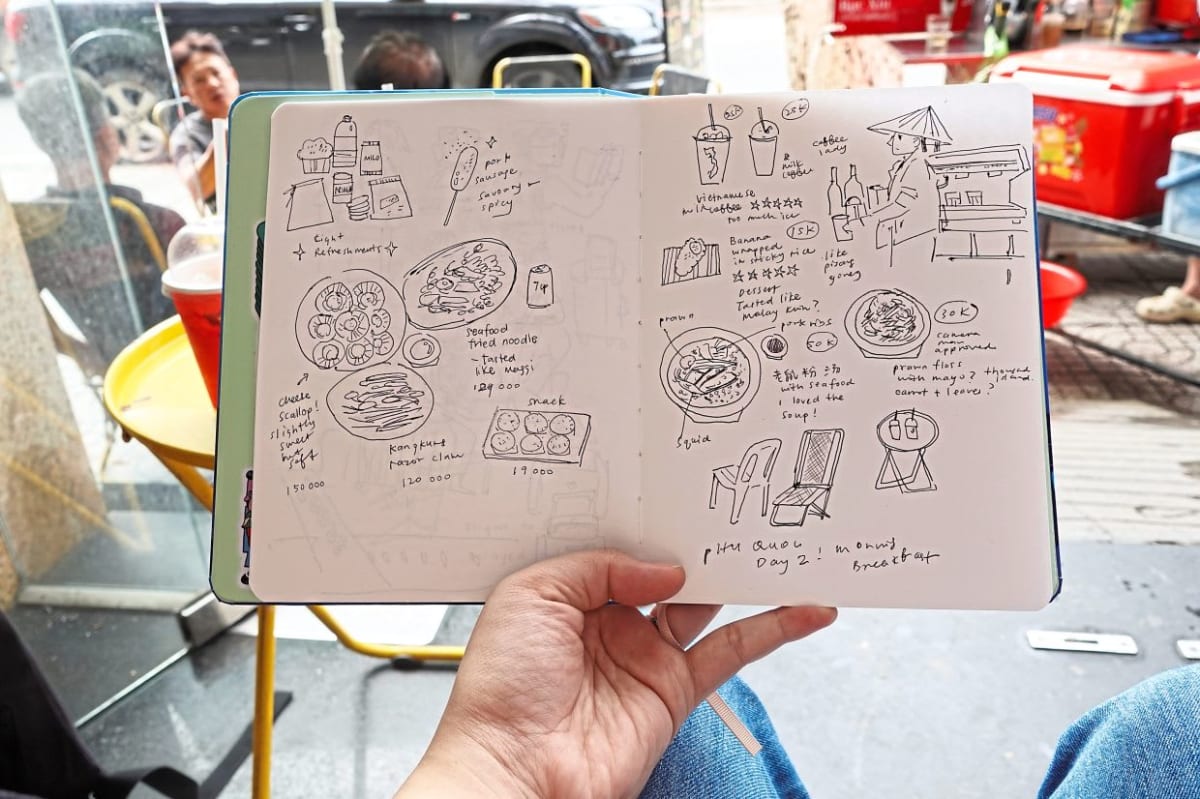 MILO
MILO
Light
Refreshments
pork
sausage
savory
spicy
7up
seafood
fried noodle
- tasted
like Maggi
129 000
cheese
scallop!
slightly
sweet
but
soft
150 000
kangkung
razor clam
120 000
snack
19 000
25K
25K
& milk
coffee
coffee
lady
vietnamese
milk coffee ☆☆☆☆☆
too much ice
Banana
wrapped
in sticky rice
15K
☆☆☆☆☆
Dessert
Tasted like
Malay kuih?
like
pisang
goreng
prawn
pork ribs
50K
老鼠粉汤
with seafood
I loved the
soup!
squid
30K
camera
man
approved
prawn floss
with mayo? thousand
island
carrot + leaves?
PHU QUOC
Day 2! Morning
Breakfast